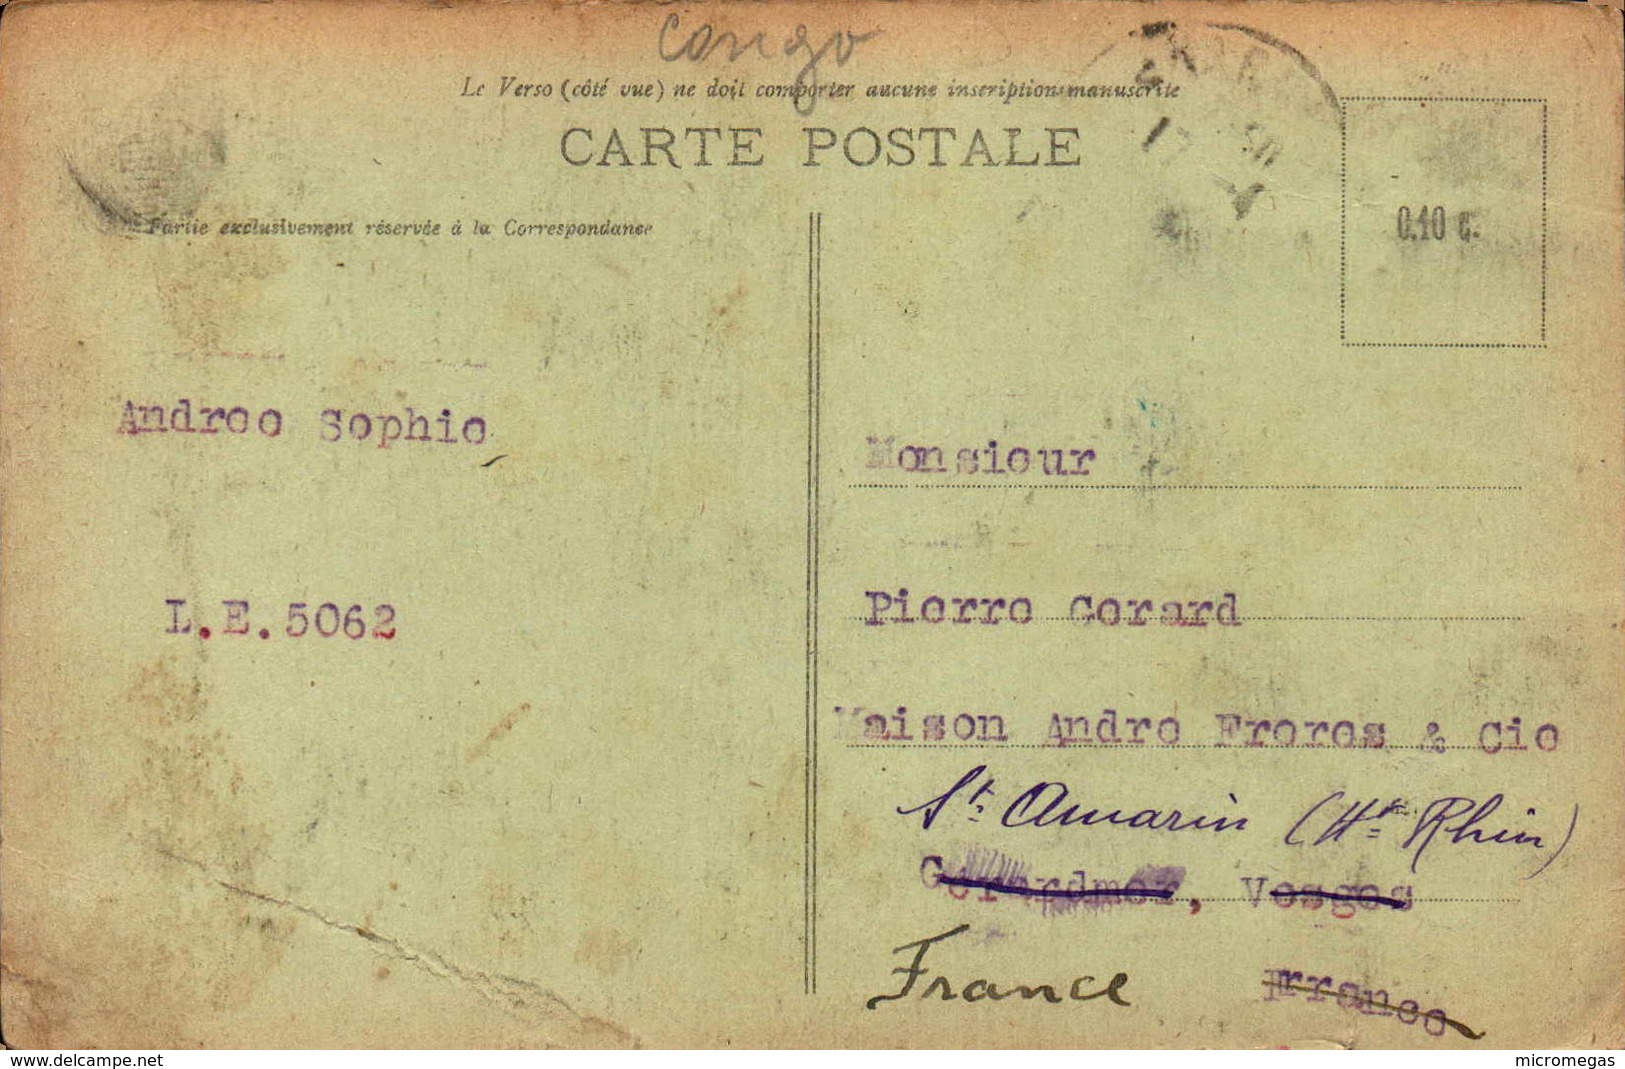 Congo
Le Verso (côté vue) ne doit comporter aucune inscription manuscrite
CARTE POSTALE
Partie exclusivement réservée à la Correspondance
0.10 c.
Andree Sophie
Monsieur
L.E.5062
Pierre Gerard
Maison Andre Freres & Cie
St. Amarin (Ht Rhin)
Gerardmer, Vosges
France
Frrance
www.delcampe.net
micromegas